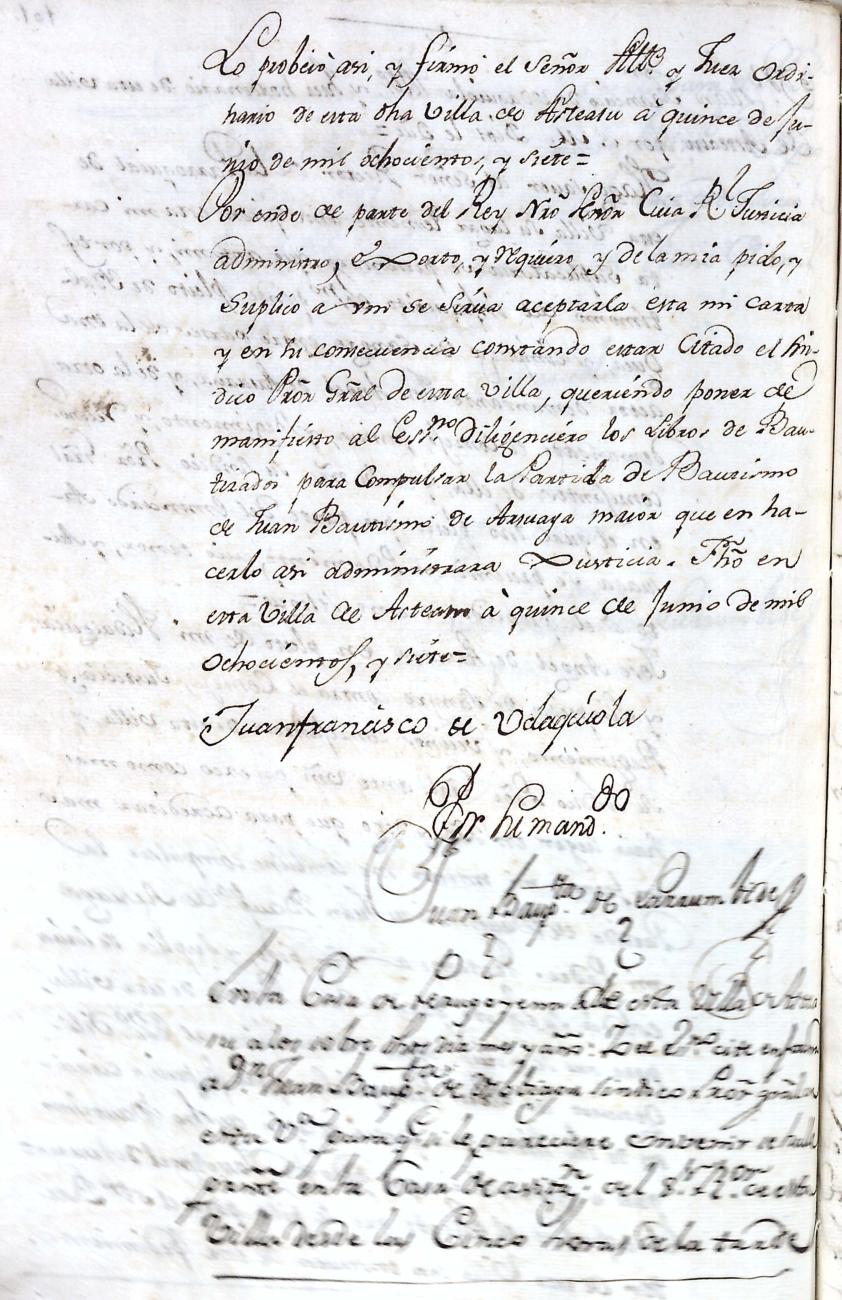 Lo probeió asi, y firmó el Señor Alld.e y Juez Ordi-
nario de esta dha Villa de Asteasu â quince de Ju-
nio de mil ochocientos, y siete=
Por ende de parte del Rey Nrô Señôr Cuia Rl Justicia
administro, Exorto, y requiero, y de la mia pido, y
Suplico a vm se sirva aceptarla esta mi carta
y en su consecuencia constando estar Citado el Sin-
dico Prôr Grâl de esta Villa, queriendo poner de
manifiesto al Ess.no Dilixenciero los Libros de Bau-
tizados para Compulsar la Partida de Bautismo
de Juan Bautismo de Aruaga maior que en ha-
cerlo asi administrara Xusticia. Fhô en
esta Villa de Asteasu â quince de Junio de mil
Ochocientos, y siete=
Juan francisco de Udaquiola
Por su mand.do
Juan Baup.ta de Larrumbide
En la Casa de de esta Villa de
su a los sobre dhos dia mes y año: Yo el Ess.no cite en
a Dn Juan Baup.ta de sindico Prôr grâl de
esta V.a para q si le pareciere convenir se halle
preste en la Casa de avitn del S.r R.or de esta
Villa desde las Cinco horas de la tarde